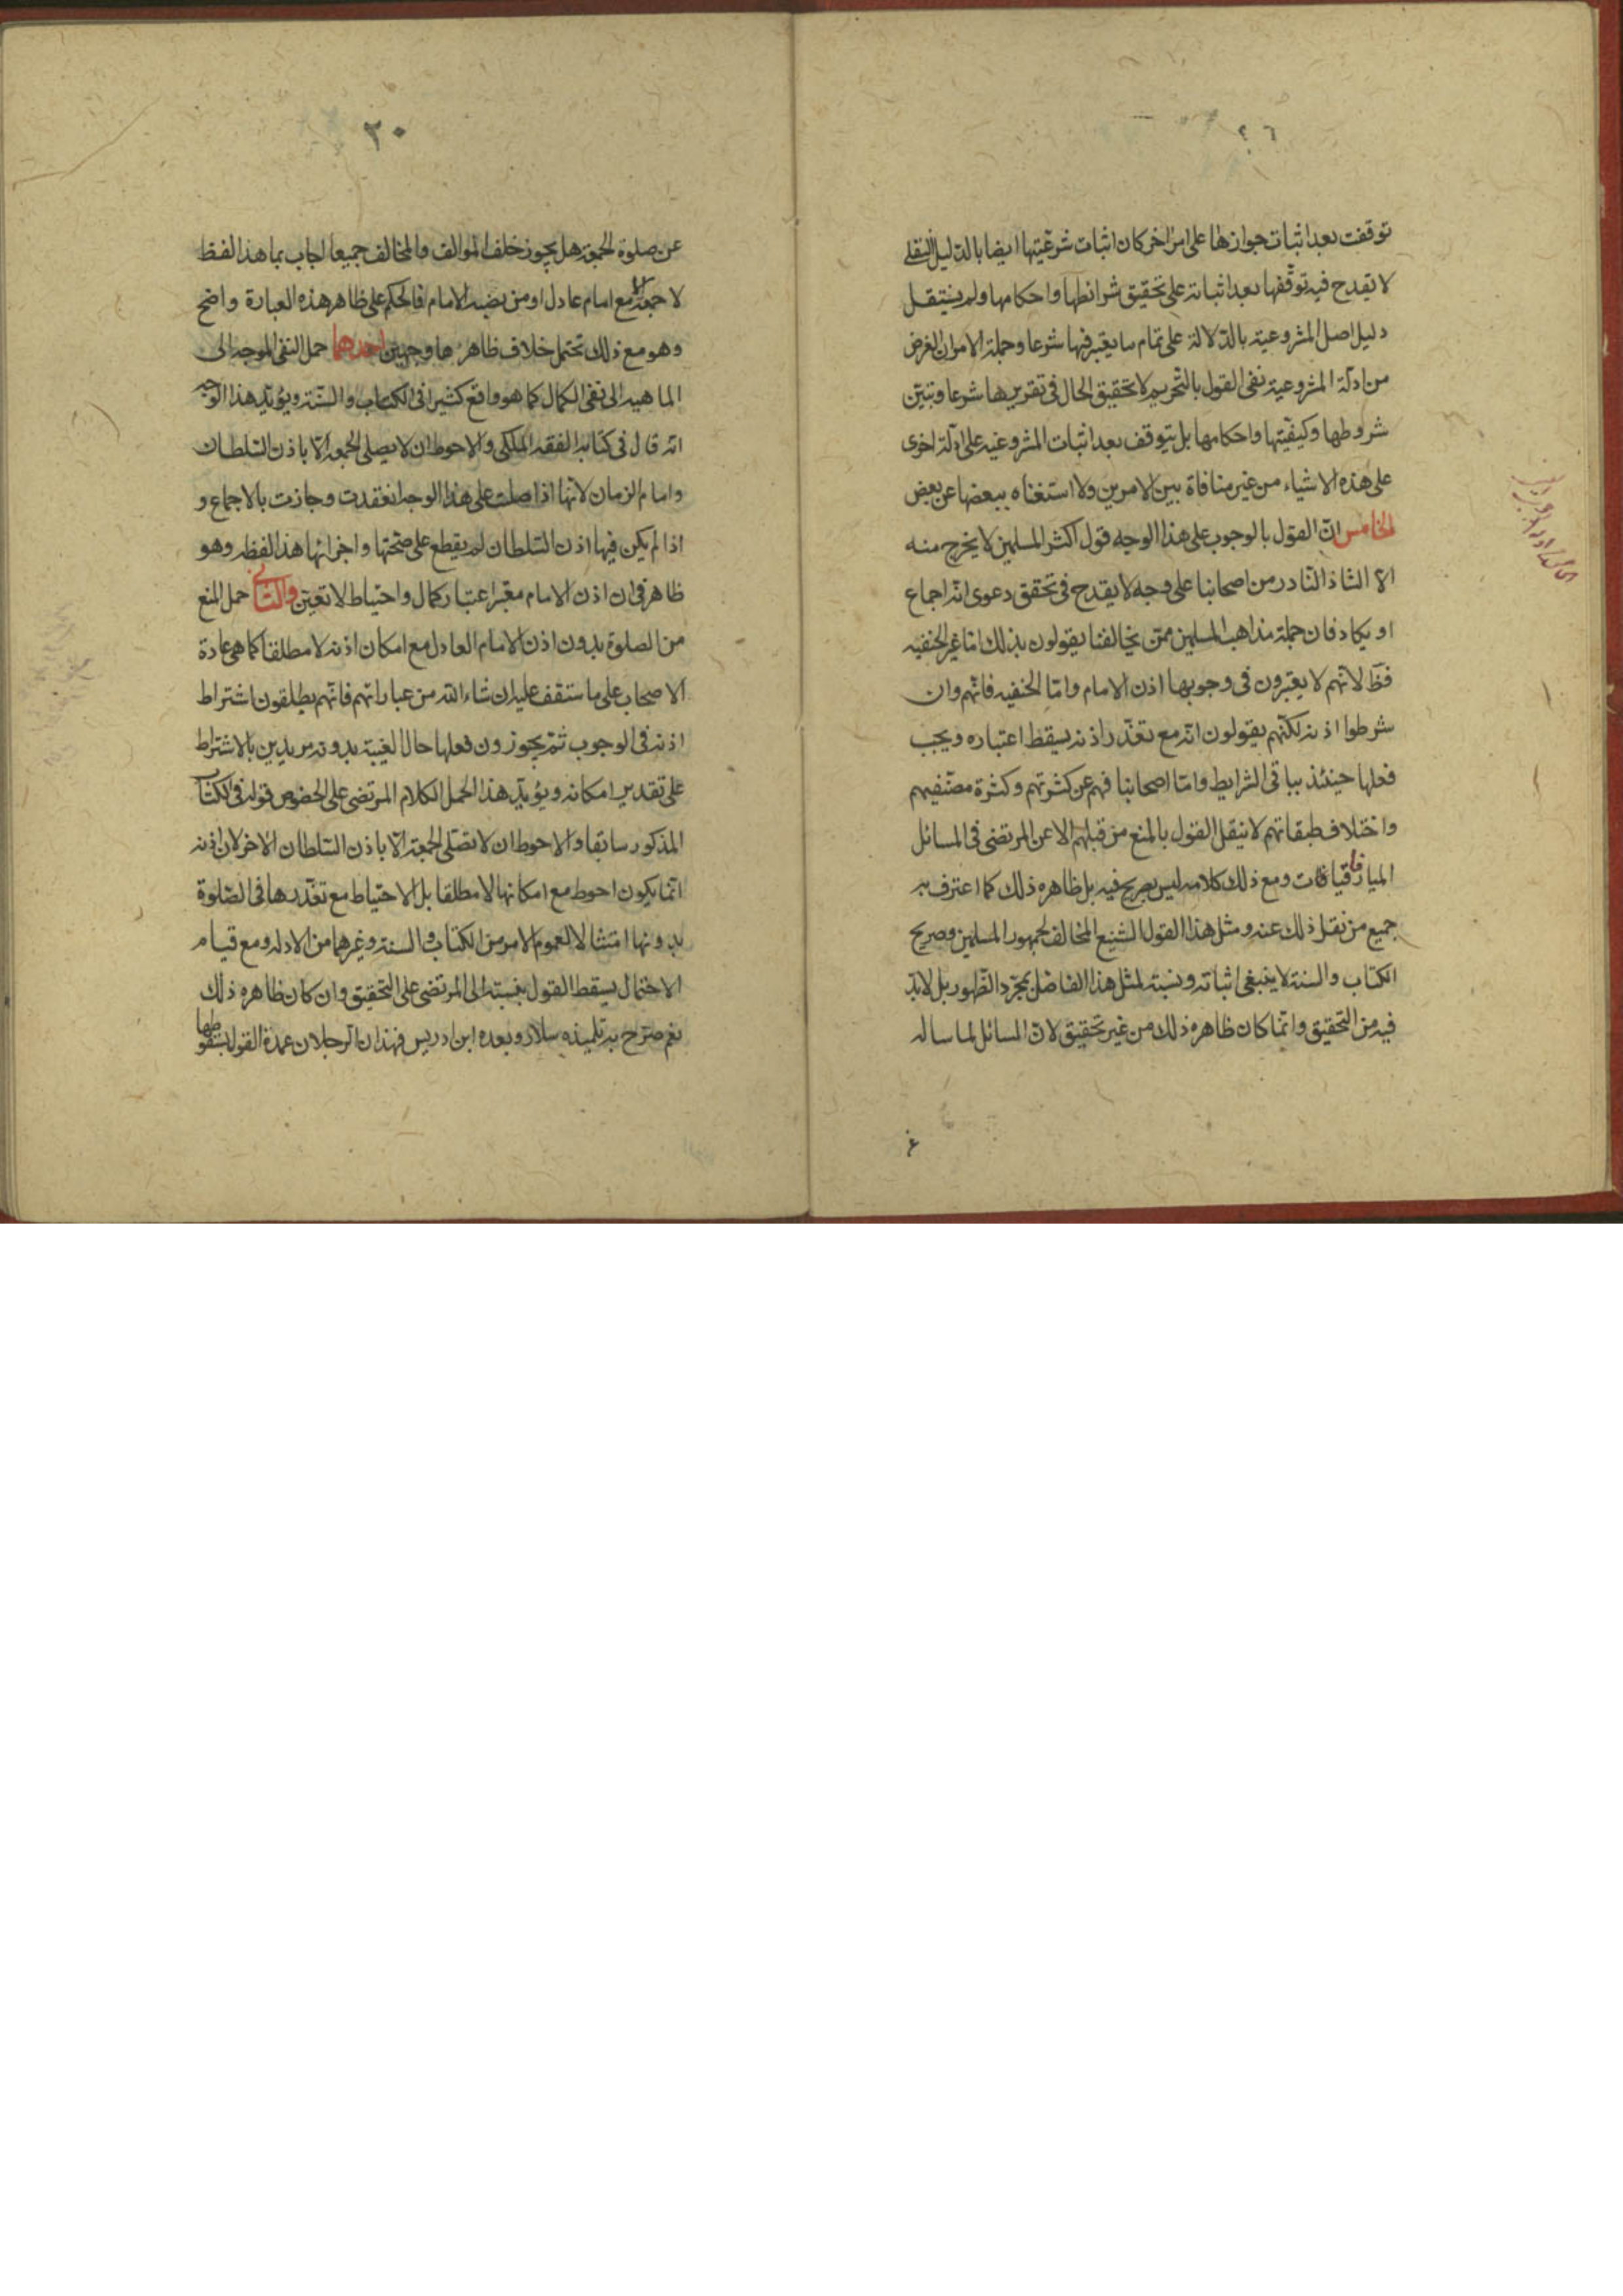 توقفت بعد اثبات جوازها على امر اخر كان اثبات شرعيتها ايضا بالدليل النقلى
لا يقدح فيه توقفها بعد اثباته على تحقيق شرائطها واحكامها ولم ينتقل
دليل اصل المشروعية بالدلالة على تمام ما يعتبر فيها شرعا وجملة الامر ان الغرض
من ادلة المشروعية نفى القول بالتحريم لا تحقيق الحال فى تقريرها شرعا وتبين
شروطها وكيفيتها واحكامها بل يتوقف بعد اثبات المشروعيه على ادلة اخرى
على هذه الاشياء من غير منافاة بين الامرين ولا استغناه ببعضها عن بعض
الخامس ان القول بالوجوب على هذا الوجه قول اكثر المسلمين لا يخرج منه
الا الشاذ النادر من اصحابنا على وجه لا يقدح فى تحقق دعوى انه اجماع
او يكاد فان جملة مذاهب المسلمين ممن يخالفنا يقولون بذلك اما غير الحنفيه
فظ لانهم لا يعتبرون فى وجوبها اذن الامام واما الحنفيه فانهم وان
شرطوا اذنه لكنهم يقولون انه مع تعذر اذنه يسقط اعتباره ويجب
فعلها حينئذ بباقى الشرايط واما اصحابنا فهم عن كثرتهم وكثرة مصنفيهم
واختلاف طبقاتهم لا ينقل القول بالمنع من قبلهم الا عن المرتضى فى المسائل
الميافارقيات ومع ذلك كلامه ليس بصريح فيه بل ظاهره ذلك كما اعترف به
جميع من نقل ذلك عنه ومثل هذا القول الشنيع المخالف لجمهور المسلمين وصريح
الكتاب والسنة لا ينبغى اثباته ونسبته لمثل هذا الفاضل بمجرد الظهور بل لابد
فيه من التحقيق وانما كان ظاهره ذلك من غير تحقيق لان المسائل لما ساله
٣٠
عن صلوة الجمعة هل يجوز خلف الموالف والمخالف جميعا اجاب بما هذا لفظ
لا جمعة الا مع امام عادل او من نصبه الامام فالحكم على ظاهر هذه العبارة واضح
وهو مع ذلك تحتمل خلاف ظاهرها وجهين احدهما حمل النفى الموجه الى
الماهيه الى نفى الكمال كما هو واقع كثيرا فى الكتاب والسنة ويؤيد هذا الوجه
انه قال فى كتابه الفقه الملكى والاحوط ان لا يصلى الجمعه الا باذن السلطان
وامام الزمان لانها اذا صلت على هذا الوجه انعقدت وجازت بالاجماع و
اذا لم يكن فيها اذن السلطان لم يقطع على صحتها واجزائها هذا لفظه وهو
ظاهر فى ان اذن الامام معتبر اعتبار كمال واحتياط لا تعين والثانى حمل المنع
من الصلوة بدون اذن الامام العادل مع امكان اذنه لا مطلقا كما هى عادة
الاصحاب على ما ستقف عليه ان شاء الله من عباراتهم فانهم يطلقون اشتراط
اذنه فى الوجوب ثم يجوزون فعلها حال الغيبة بدونه مريدين بالاشتراط
على تقدير امكانه ويؤيد هذا الحمل لكلام المرتضى على الخصوص قوله فى الكتاب
المذكور سابقا والاحوط ان لا تصلى الجمعة الا باذن السلطان الاخر لان اذنه
انما يكون احوط مع امكانها لا مطلقا بل الاحتياط مع تعذرها فى الصلوة
بدونها امتثالا لعموم الامر من الكتاب والسنة وغيرهما من الادله ومع قيام
الاحتمال يسقط القول بنسبته الى المرتضى على التحقيق وان كان ظاهره ذلك
نعم صرح به تلميذه سلار وبعده ابن ادريس فهذان الرجلان عمدة القول بسقوطها